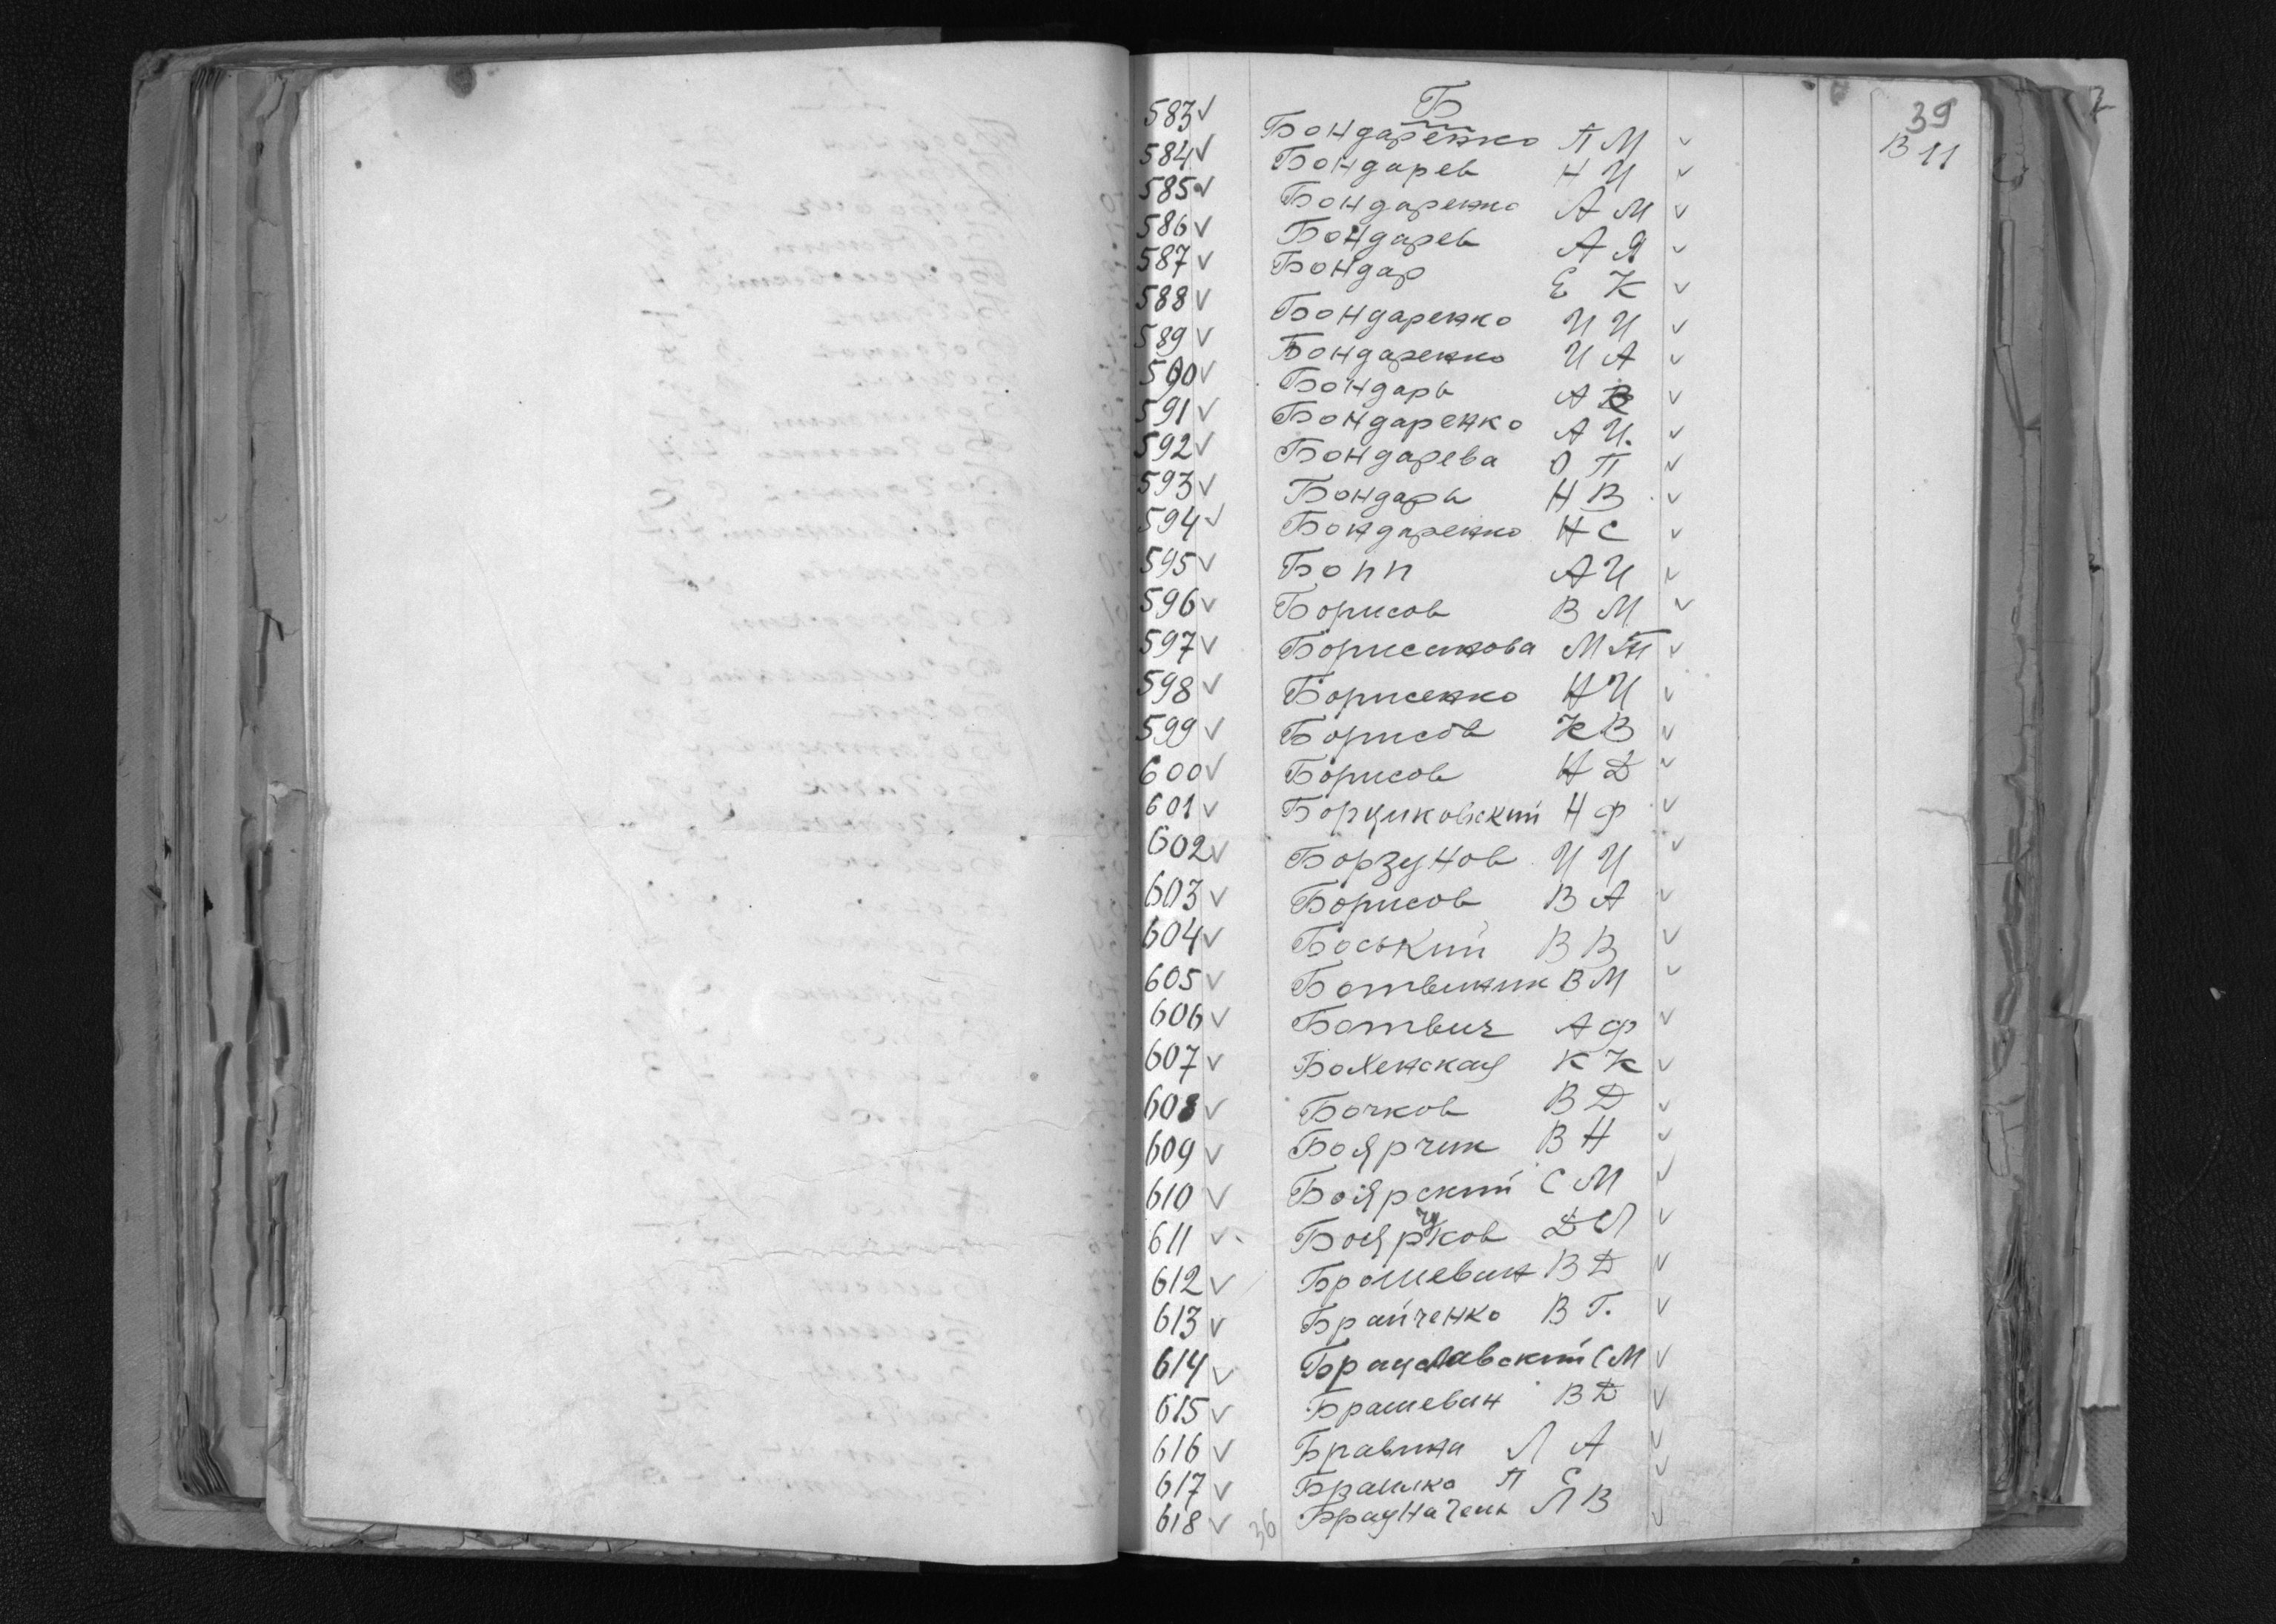 Б
39
В 11
583 ✓ Бондаренко П М ✓
584 ✓ Бондарев Н И ✓
585 ✓ Бондаренко А М ✓
586 ✓ Бондарев А Я ✓
587 ✓ Бондар Е К ✓
588 ✓ Бондаренко И И ✓
589 ✓ Бондаренко И А ✓
590 ✓ Бондарь А В ✓
591 ✓ Бондаренко А И. ✓
592 ✓ Бондарева О П ✓
593 ✓ Бондарь Н В ✓
594 ✓ Бондаренко Н С ✓
595 ✓ Бопп А И ✓
596 ✓ Борисов В М ✓
597 ✓ Борисенкова М ✓
598 ✓ Борисенко Н И ✓
599 ✓ Борисов К В ✓
600 ✓ Борисов Н Д ✓
601 ✓ Борциковский Н Ф ✓
602 ✓ Борзунов И И ✓
603 ✓ Борисов В А ✓
604 ✓ Боський В В ✓
605 ✓ Ботвинник В М ✓
606 ✓ Ботвич А Ф ✓
607 ✓ Бохенская К К ✓
608 ✓ Бочков В Д ✓
609 ✓ Боярчик В Н ✓
610 ✓ Боярский С М ✓
611 ✓ Боярчуков Д Л ✓
612 ✓ Брошеван В Д ✓
613 ✓ Брайченко В Г. ✓
614 ✓ Брацлавский С М ✓
615 ✓ Брашеван В Д ✓
616 ✓ Бравина Л А ✓
617 ✓ Брашко П Е ✓
618 ✓ Л В ✓
36